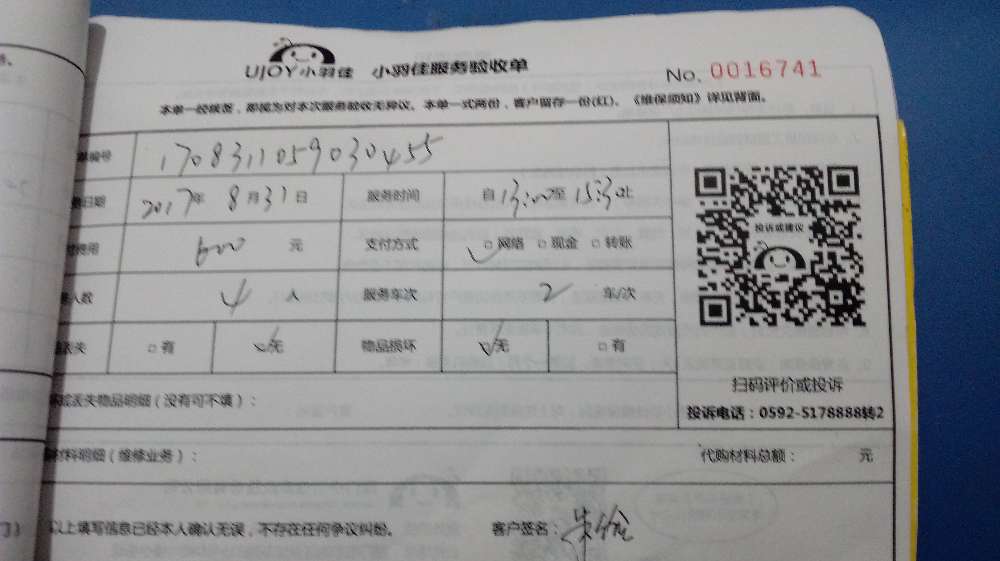 UJOY小羽佳 小羽佳服务验收单 No. 0016741
本单一经核签，即视为对本次服务验收无异议。本单一式两份，客户留存一份(红)。《维保须知》详见背面。
单编号 1708311059030455
日期 2017年 8月31日 服务时间 自13:00至15:30止
费用 600 元 支付方式 ☑网络 □现金 □转账
人数 4 人 服务车次 2 车/次
丢失 □有 ☑无 物品损坏 ☑无 □有
投诉或建议
扫码评价或投诉
投诉电话：0592-5178888转2
或丢失物品明细（没有可不填）：
材料明细（维修业务）： 代购材料总额： 元
门） 以上填写信息已经本人确认无误，不存在任何争议纠纷。 客户签名：